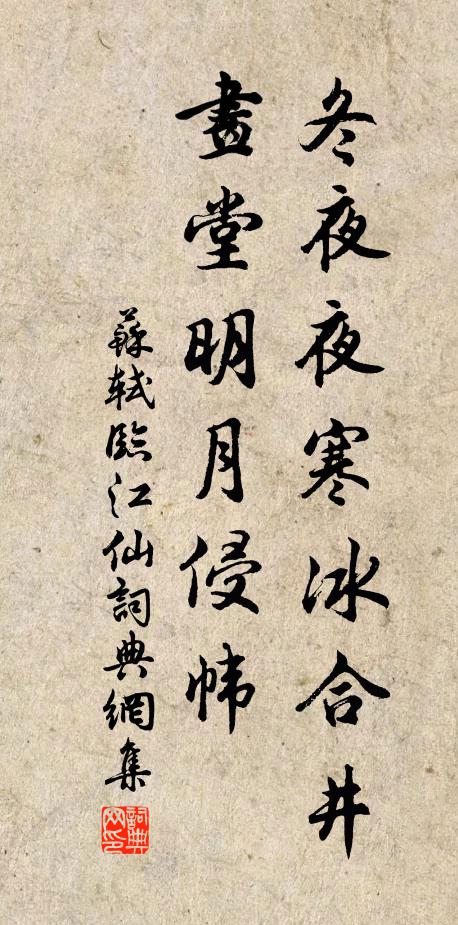 冬夜夜寒冰合井
畫堂明月侵幃
蘇軾臨江仙詞典網集
詞典网印